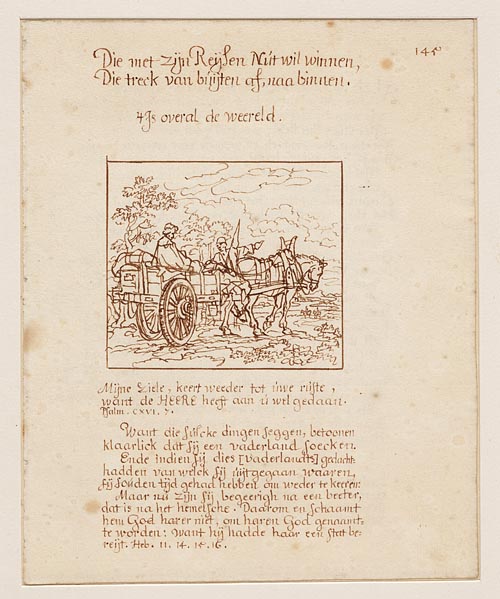 145
Die met zijn Reÿsen Nut wil winnen,
Die treck van buÿten af, naa binnen.
't Is overal de weereld.
Mijne Ziele, keert weeder tot uwe ruste,
want de HEERE heeft aan u wel gedaan.
Psalm. CXVI. 7.
Want die sulcke dingen seggen, betoonen
klaarlick dat sij een vaderland soecken.
Ende indien sij dies [vaderlandts] gedacht
hadden van welck sij uÿtgegaan waaren,
sij souden tijd gehad hebben om weder te keeren:
Maar nu zijn sij begeerigh na een beeter,
dat is na het hemelsche. Daarom en schaamt
hem God harer niet, om haren God genaamt
te worden: Want hij hadde haar een stat be-
reijt. Heb. 11. 14. 15. 16.